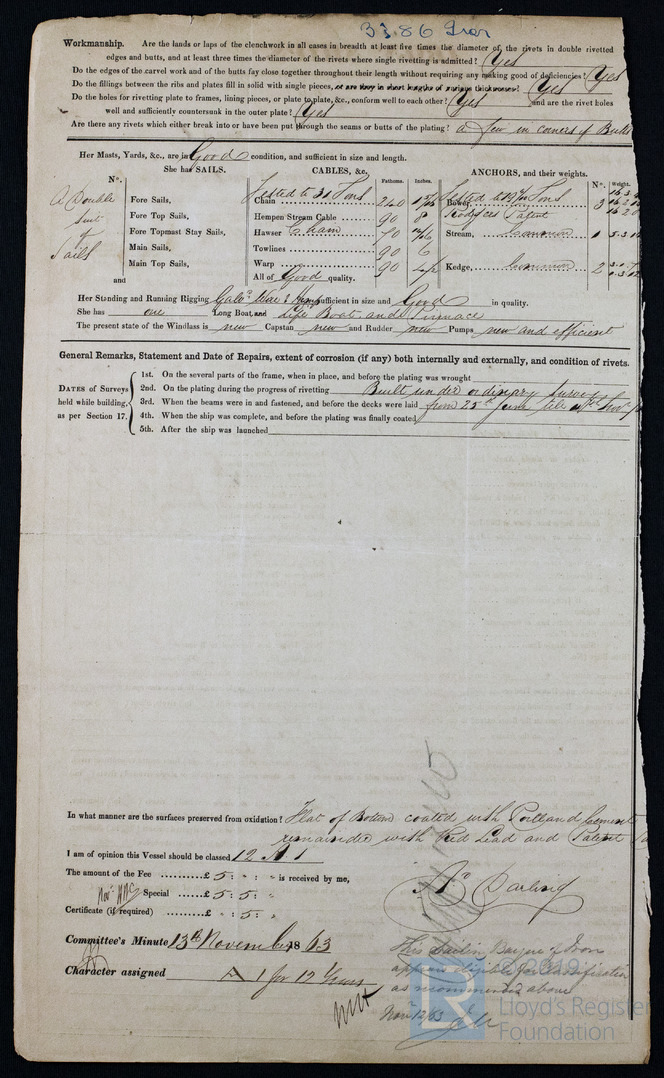 3386 Iron
Workmanship. Are the lands or laps of the clenchwork in all cases in breadth at least five times the diameter of the rivets in double rivetted
edges and butts, and at least three times the diameter of the rivets where single rivetting is admitted? Yes
Do the edges of the carvel work and of the butts fay close together throughout their length without requiring any making good of deficiencies? Yes
Do the fillings between the ribs and plates fill in solid with single pieces, or are they in short lengths of various thicknesses? Yes
Do the holes for rivetting plate to frames, lining pieces, or plate to plate, &c., conform well to each other? Yes and are the rivet holes
well and sufficiently countersunk in the outer plate? Yes
Are there any rivets which either break into or have been put through the seams or butts of the plating? a few in corners of Butts
Her Masts, Yards, &c., are in Good condition, and sufficient in size and length.
She has SAILS. CABLES, &c. Fathoms. Inches. ANCHORS, and their weights. Nº. Weight.
Nº.
A Double suit of Sails
Fore Sails,
Fore Top Sails,
Fore Topmast Stay Sails,
Main Sails,
Main Top Sails,
and
Tested to 31 Tons
Chain 240
Hempen Stream Cable 90 8
Hawser Chain 70
Towlines 90 6
Warp 90
All of Good quality.
Tested to Tons
Bower, 3
Rodgers Patent
Stream, Common 1
Kedge, Common 2
Her Standing and Running Rigging Galvd. Wire & Hemp sufficient in size and Good in quality.
She has one Long Boat and Life Boat and Pinnace
The present state of the Windlass is new Capstan new and Rudder new Pumps new and efficient
General Remarks, Statement and Date of Repairs, extent of corrosion (if any) both internally and externally, and condition of rivets.
DATES of Surveys
held while building,
as per Section 17.
1st. On the several parts of the frame, when in place, and before the plating was wrought
2nd. On the plating during the progress of rivetting Built under ordinary Survey
3rd. When the beams were in and fastened, and before the decks were laid from 25th June till
4th. When the ship was complete, and before the plating was finally coated
5th. After the ship was launched
In what manner are the surfaces preserved from oxidation? Flat of Bottom coated with Portland Cement
remainder with Red Lead and Patent
I am of opinion this Vessel should be classed 12 A 1
The amount of the Fee £ 5 : " : " is received by me,
Special £ 5 : 5 : "
Certificate (if required) £ " : 5 : "
A. Darling
Committee's Minute 13th November 1863
Character assigned A 1 for 12 Years
This Sailing of Iron
appears eligible for Classification
as recommended above
Nov 12/63
©2019
Lloyd's Register
Foundation